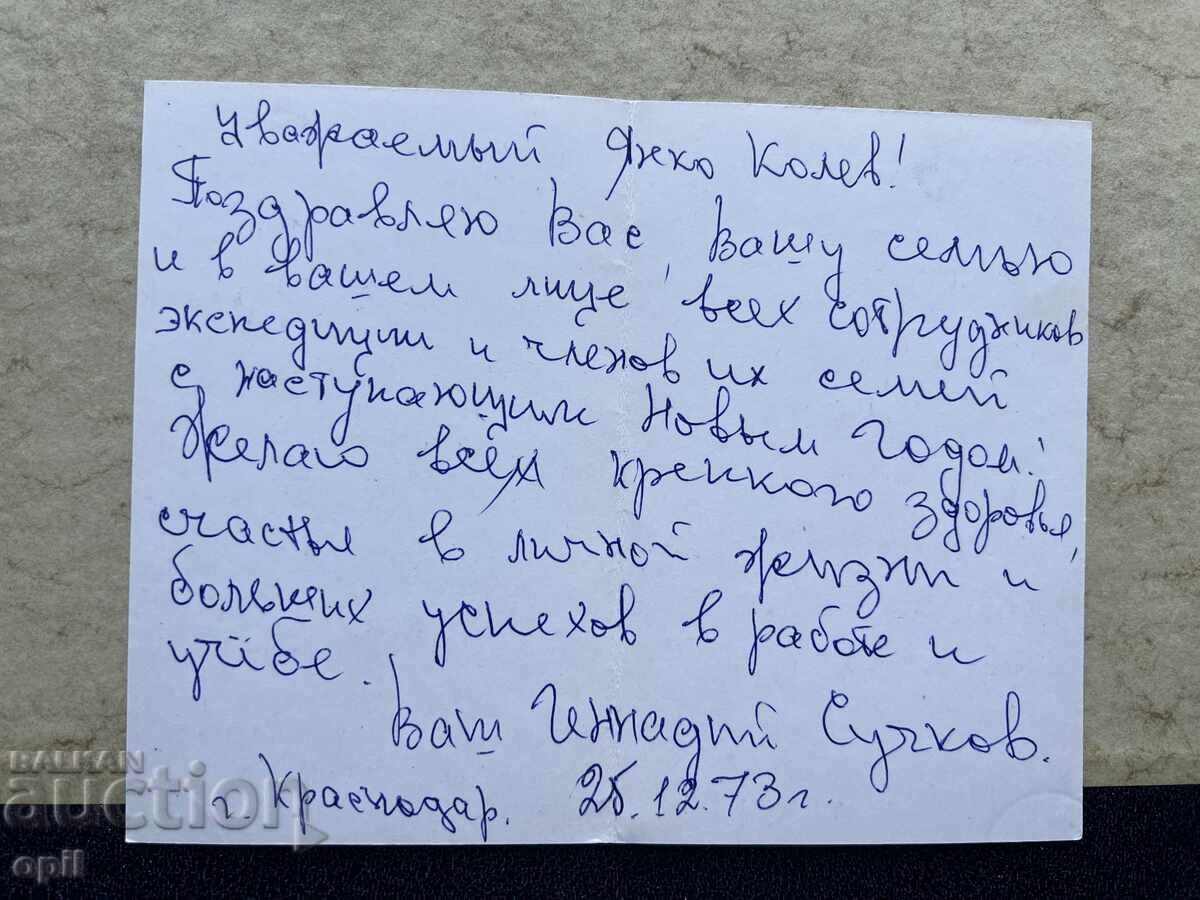 Уважаемый Янко Колев!
Поздравляю Вас, Вашу семью
и в вашем лице, всех сотрудников
экспедиции и членов их семей
с наступающим Новым Годом!
Желаю всем крепкого здоровья,
счастья в личной жизни и
больших успехов в работе и
учёбе.
Ваш Геннадий Сучков.
г. Краснодар. 25.12.73 г.
BALKAN
auction
opil